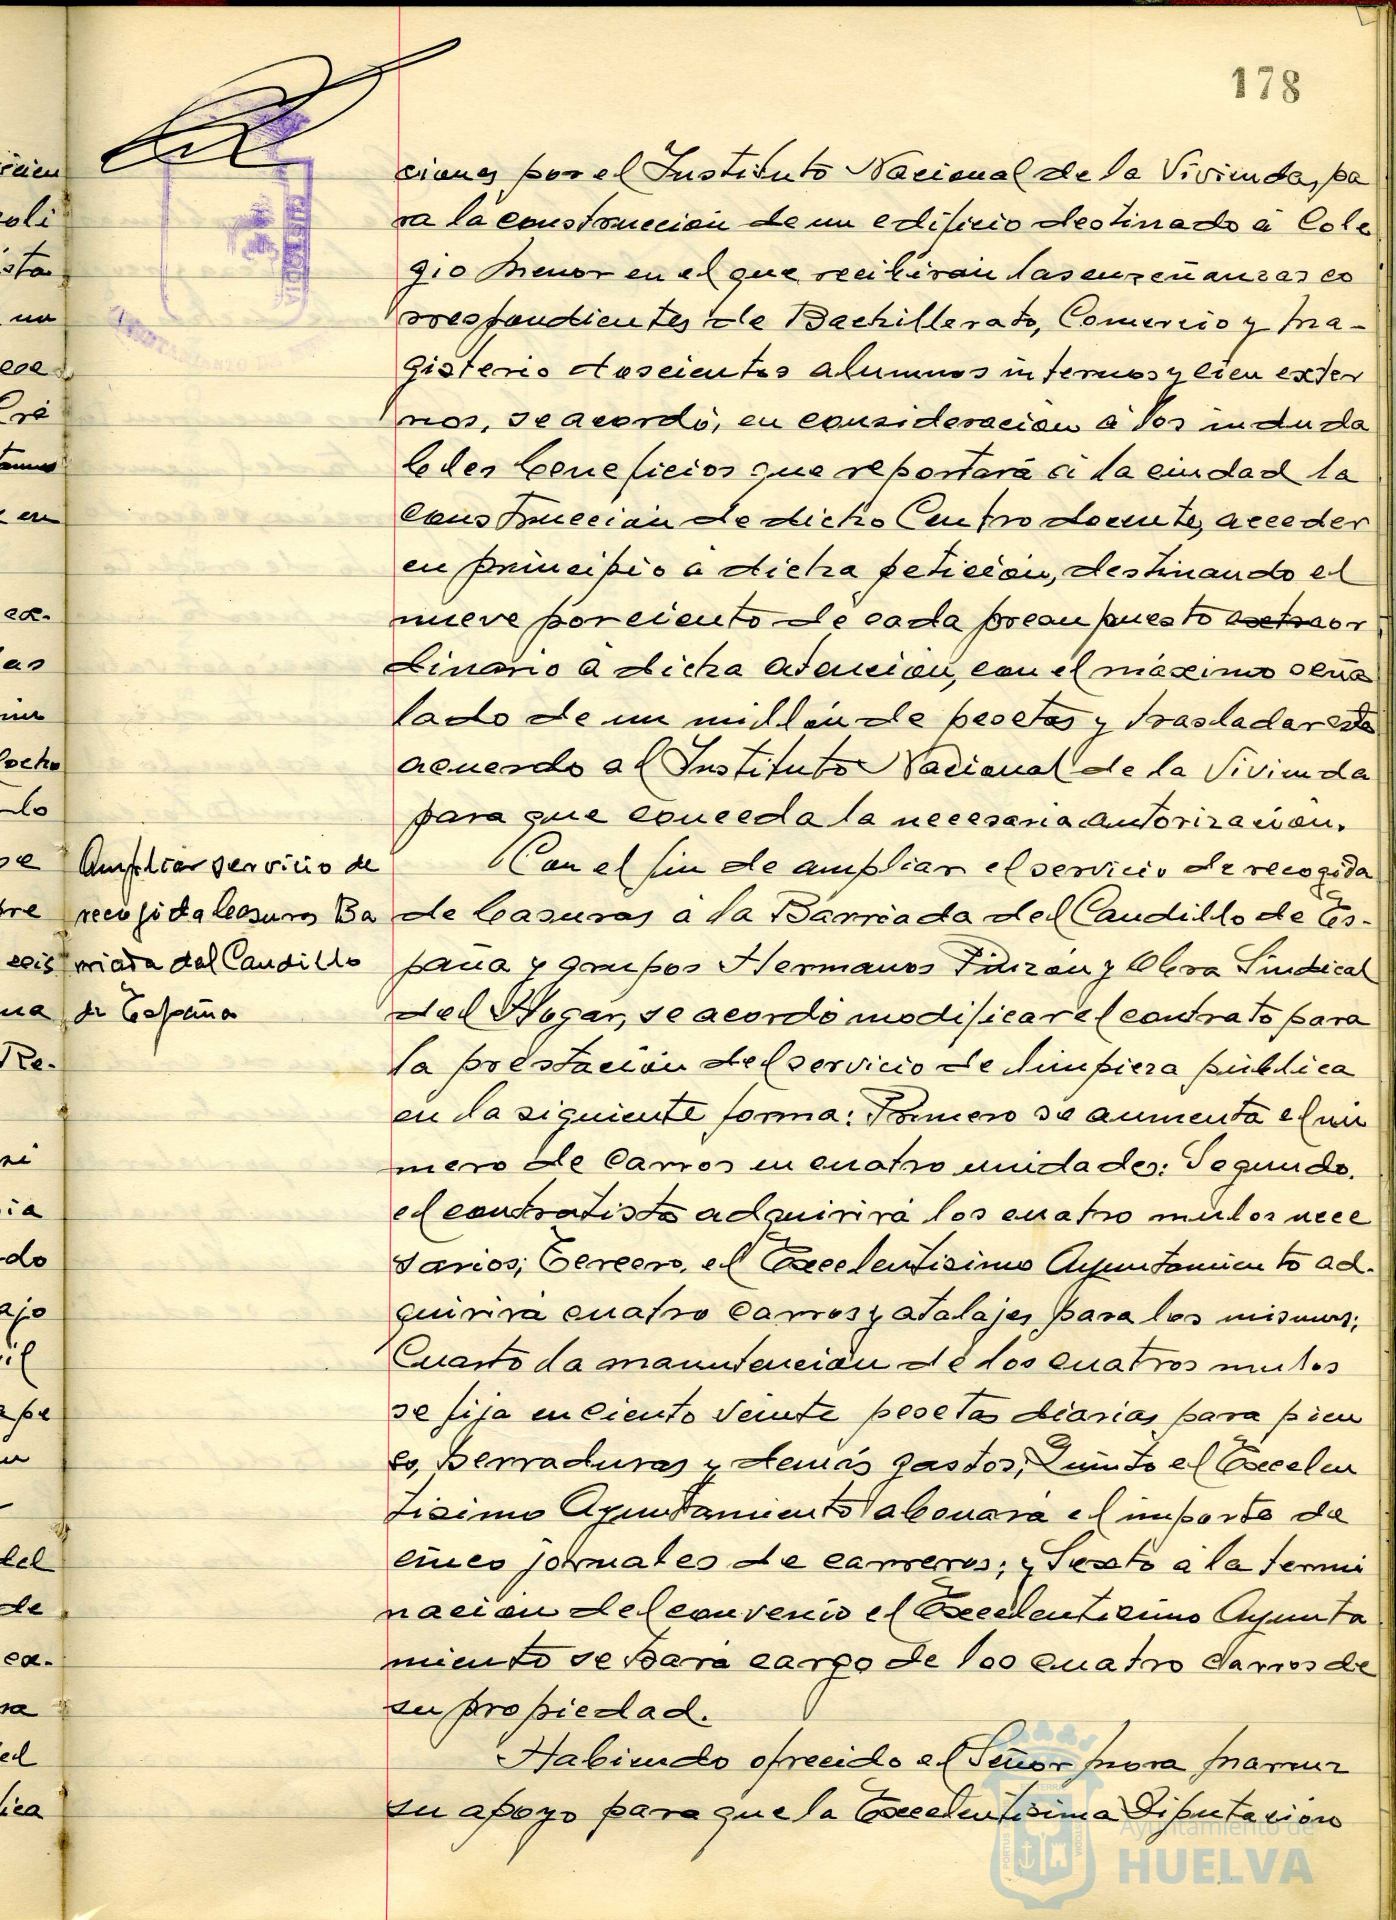 178
ciones por el Instituto Nacional de la Vivienda, pa
ra la construcción de un edificio destinado á Cole
gio Menor en el que recibirán las enseñanzas co
rrespondientes de Bachillerato, Comercio y Ma-
gisterio doscientos alumnos internos y cien exter
nos, se acordó, en consideración á los induda
bles beneficios que reportará á la ciudad la
construcción de dicho Centro docente, acceder
en principio á dicha petición, destinando el
nueve por ciento de cada presupuesto extraor
dinario á dicha atención, con el máximo seña
lado de un millón de pesetas y trasladar este
acuerdo al Instituto Nacional de la Vivienda
para que conceda la necesaria autorización.
Ampliar servicio de
recogida basuras Ba
rriada del Caudillo
de España
Con el fin de ampliar el servicio de recogida
de basuras á la Barriada del Caudillo de Es-
paña y grupos Hermanos Pinzón y Obra Sindical
del Hogar, se acordó modificar el contrato para
la prestación del servicio de limpieza pública
en la siguiente forma: Primero se aumenta el nú
mero de carros en cuatro unidades: Segundo.
el contratista adquirirá los cuatro mulos nece
sarios; Tercero, el Excelentísimo Ayuntamiento ad-
quirirá cuatro carros y atalajes para los mismos;
Cuarto la manutención de los cuatros mulos
se fija en ciento veinte pesetas diarias, para pien
so, herraduras y demás gastos; Quinto el Excelen
tísimo Ayuntamiento abonará el importe de
cinco jornales de carreros; y Sexto á la termi
nación del convenio el Excelentísimo Ayunta
miento se hará cargo de los cuatro carros de
su propiedad.
Habiendo ofrecido el Señor Mora
su apoyo para que la Excelentísima Diputación
Ayuntamiento de
HUELVA